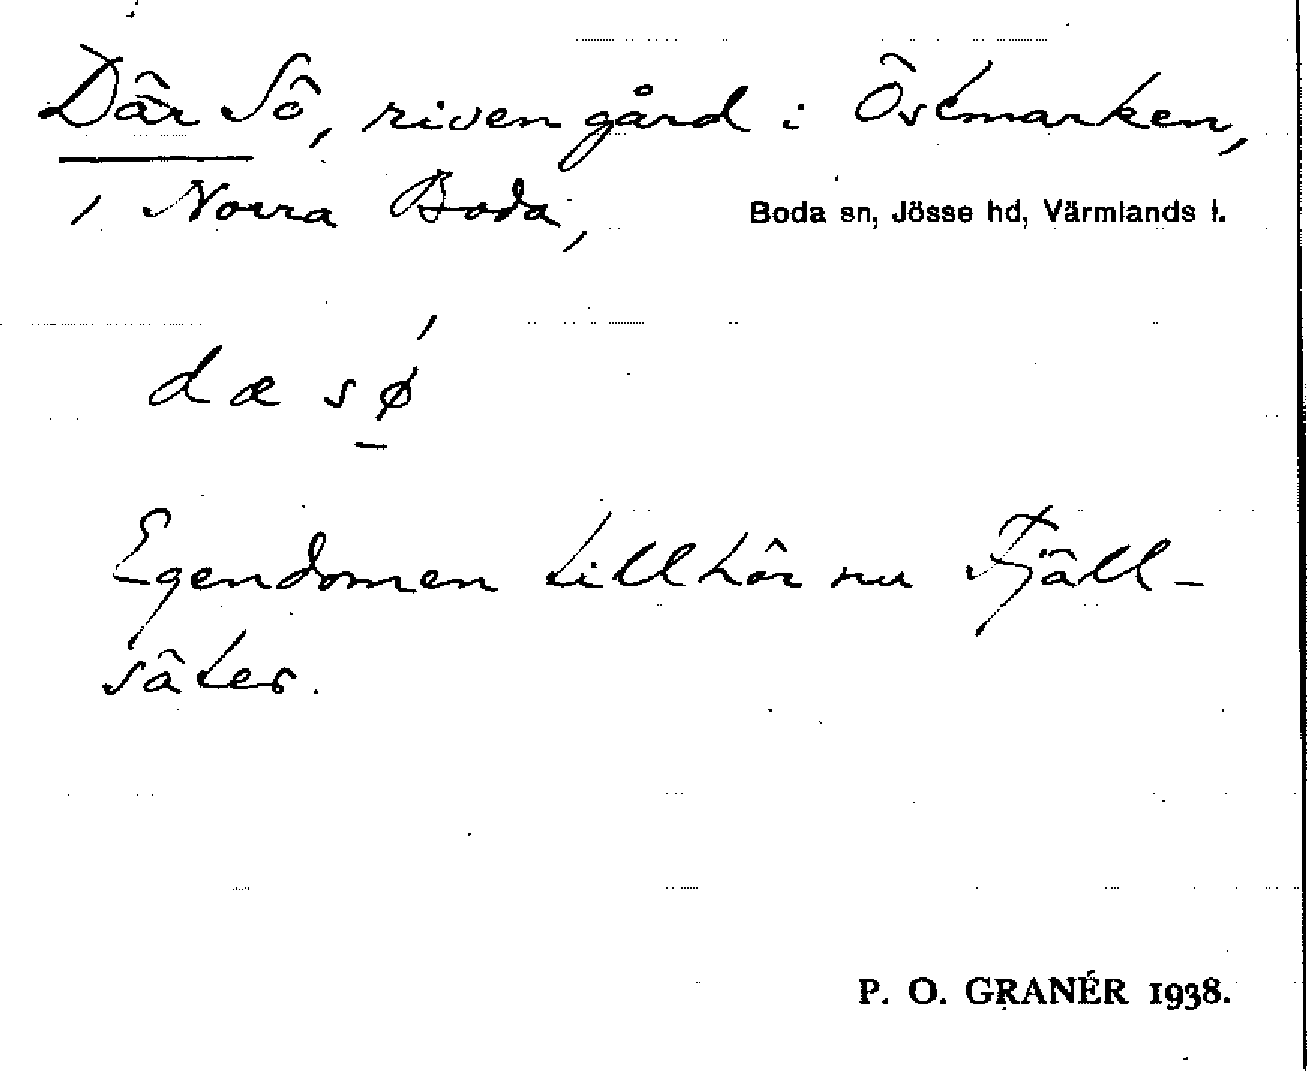 Där Sö, riven gård i Östmarken,
i Norra Boda, Boda sn, Jösse hd, Värmlands l.
dæ sǿ
Egendomen tillhör nu Fjäll-
säter.
P. O. GRANÉR 1938.